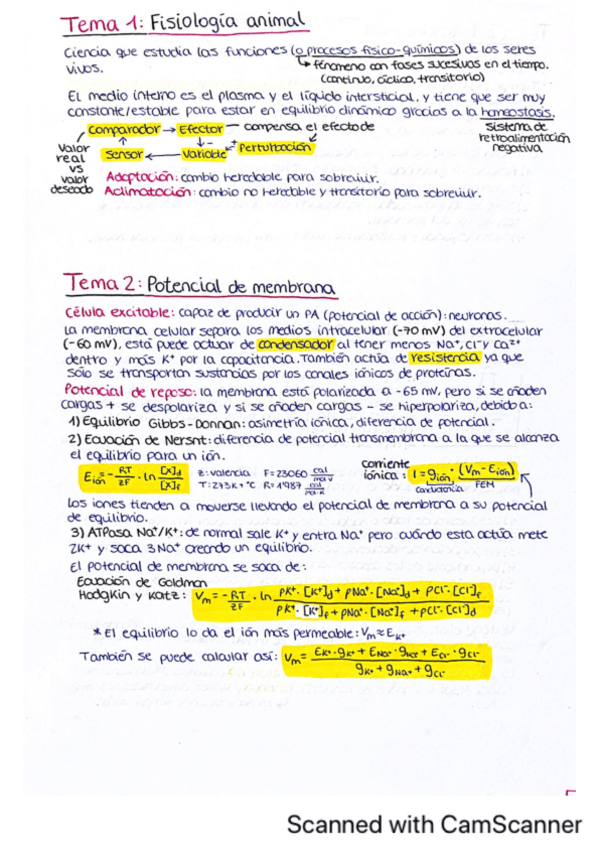 Tema 1: Fisiología animal
Ciencia que estudia las funciones (o procesos físico-químicos) de los seres
vivos.
↳ fenómeno con fases sucesivas en el tiempo.
(continuo, cíclico, transitorio)
El medio interno es el plasma y el líquido intersticial, y tiene que ser muy
constante/estable para estar en equilibrio dinámico gracias a la homeostasis.
Comparador → Efector — compensa el efecto de
sistema de
retroalimentación
negativa
Valor
real
vs
valor
deseado
Sensor ← Variable ← Perturbación
Adaptación: cambio heredable para sobrevivir.
Aclimatación: cambio no heredable y transitorio para sobrevivir.
Tema 2: Potencial de membrana
Célula excitable: capaz de producir un PA (potencial de acción): neuronas.
La membrana celular separa los medios intracelular (-70 mV) del extracelular
(-60 mV), esta puede actuar de condensador al tener menos Na⁺, Cl⁻ y Ca²⁺
dentro y más K⁺ por la capacitancia. También actúa de resistencia ya que
solo se transportan sustancias por los canales iónicos de proteínas.
Potencial de reposo: la membrana está polarizada a -65 mV, pero si se añaden
cargas + se despolariza y si se añaden cargas - se hiperpolariza, debido a:
1) Equilibrio Gibbs-Donnan: asimetría iónica, diferencia de potencial.
2) Ecuación de Nersnt: diferencia de potencial transmembrana a la que se alcanza
el equilibrio para un ión.
E ión = - RT/ZF · ln [X]d/[X]f
z: valencia F = 23060 cal/mol·V
T: 273K + °C R = 1'987 cal/mol·K
corriente
iónica: I = g ión · (Vm - E ión)
conductancia FEM
los iones tienden a moverse llevando el potencial de membrana a su potencial
de equilibrio.
3) ATPasa Na⁺/K⁺: de normal sale K⁺ y entra Na⁺ pero cuando esta actúa mete
2K⁺ y saca 3Na⁺ creando un equilibrio.
El potencial de membrana se saca de:
Ecuación de Goldman
Hodgkin y Katz: Vm = - RT/ZF · ln (PK⁺·[K⁺]d + PNa⁺·[Na⁺]d + PCl⁻·[Cl⁻]f)/(PK⁺·[K⁺]f + PNa⁺·[Na⁺]f + PCl⁻·[Cl⁻]d)
* El equilibrio lo da el ión más permeable: Vm ≈ EK⁺
También se puede calcular así: Vm = (EK⁺·gK⁺ + ENa⁺·gNa⁺ + ECl⁻·gCl⁻)/(gK⁺ + gNa⁺ + gCl⁻)
Scanned with CamScanner